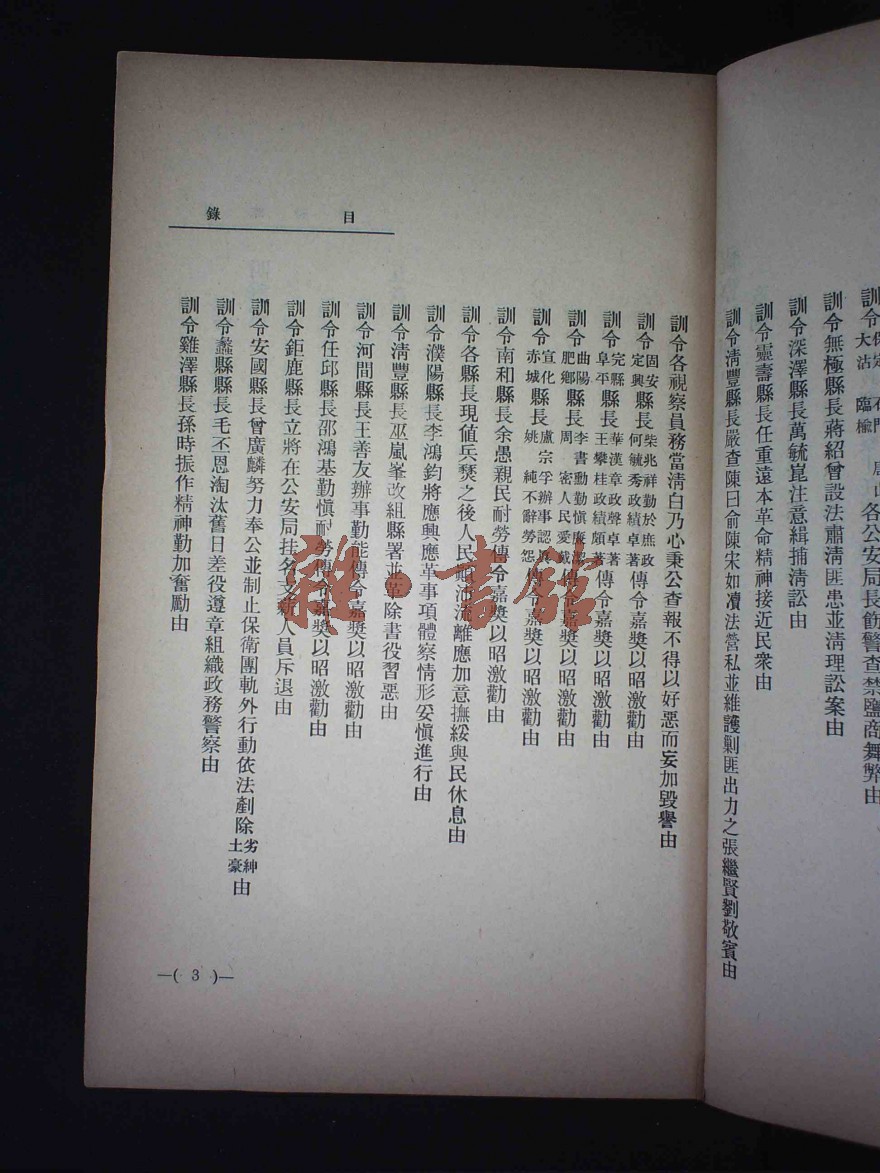 訓令無極縣長蔣紹曾設法肅淸匪患並淸理訟案由
訓令深澤縣長萬毓崑注意緝捕淸訟由
訓令靈壽縣長任重遠本革命精神接近民衆由
訓令淸豐縣長嚴查陳曰俞陳宋如凟法營私並維護剿匪出力之張繼賢劉敬賓由
目錄
訓令各視察員務當淸白乃心秉公查報不得以好惡而妄加毀譽由
訓令固安定興縣長柴兆祥勤於庶政何毓秀政績卓著傳令嘉獎以昭激勸由
訓令完縣阜平縣長華漢章政聲卓著王攀桂政績頗著傳令嘉獎以昭激勸由
訓令曲陽肥鄉縣長李書勳勤愼廉潔周密人民愛戴傳令嘉獎以昭激勸由
訓令宣化赤城縣長盧宗孚辦事認眞姚純不辭勞怨傳令嘉獎以昭激勸由
訓令南和縣長余愚親民耐勞傳令嘉獎以昭激勸由
訓令各縣長現値兵燹之後人民顚沛流離應加意撫綏與民休息由
訓令濮陽縣長李鴻鈞將應興應革事項體察情形妥愼進行由
訓令淸豐縣長巫嵐峯改組縣署並革除書役習惡由
訓令河間縣長王善友辦事勤能傳令嘉獎以昭激勸由
訓令任邱縣長邵鴻基勤愼耐勞傳令嘉獎以昭激勸由
訓令鉅鹿縣長立將在公安局挂名支薪人員斥退由
訓令安國縣長曾廣麟努力奉公並制止保衛團軌外行動依法剷除劣紳土豪由
訓令蠡縣縣長毛丕恩淘汰舊日差役遵章組織政務警察由
訓令雞澤縣長孫時振作精神勤加奮勵由
—( 3 )—
雜·書館